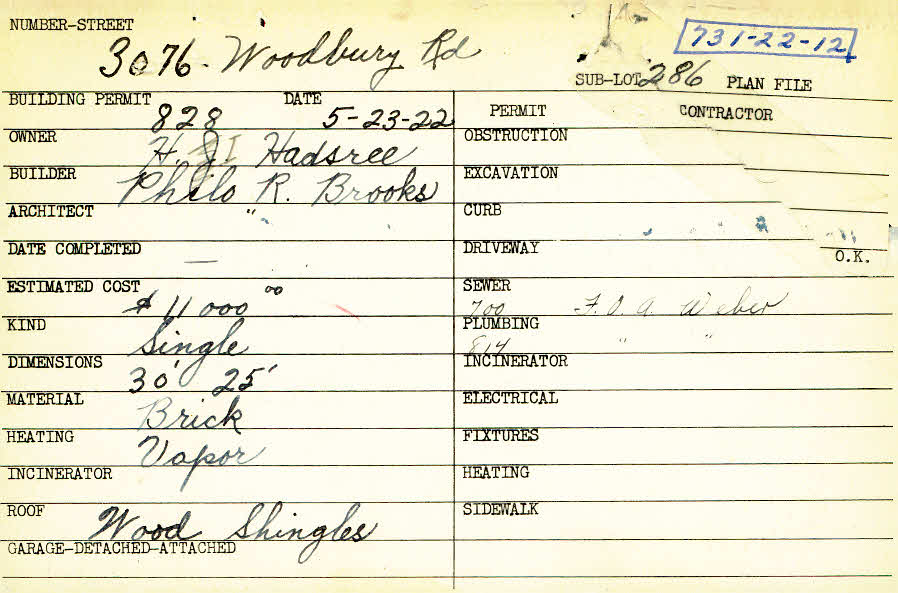 NUMBER-STREET
3076. Woodbury Rd
731-22-12
SUB-LOT 286 PLAN FILE
BUILDING PERMIT 828 DATE 5-23-22
OWNER H. J. Hadsree
BUILDER Philo R. Brooks
ARCHITECT "
DATE COMPLETED —
ESTIMATED COST $11 000 00
KIND Single
DIMENSIONS 30' 25'
MATERIAL Brick
HEATING Vapor
INCINERATOR
ROOF Wood Shingles
GARAGE-DETACHED-ATTACHED
PERMIT CONTRACTOR
OBSTRUCTION
EXCAVATION
CURB
DRIVEWAY O.K.
SEWER 700 F. O. A. Weber
PLUMBING 814 " "
INCINERATOR
ELECTRICAL
FIXTURES
HEATING
SIDEWALK